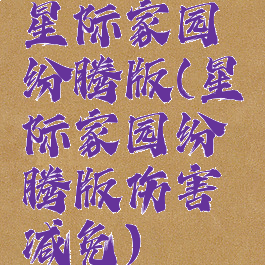 星际家园
纷腾版(星
际家园纷
腾版伤害
减免)